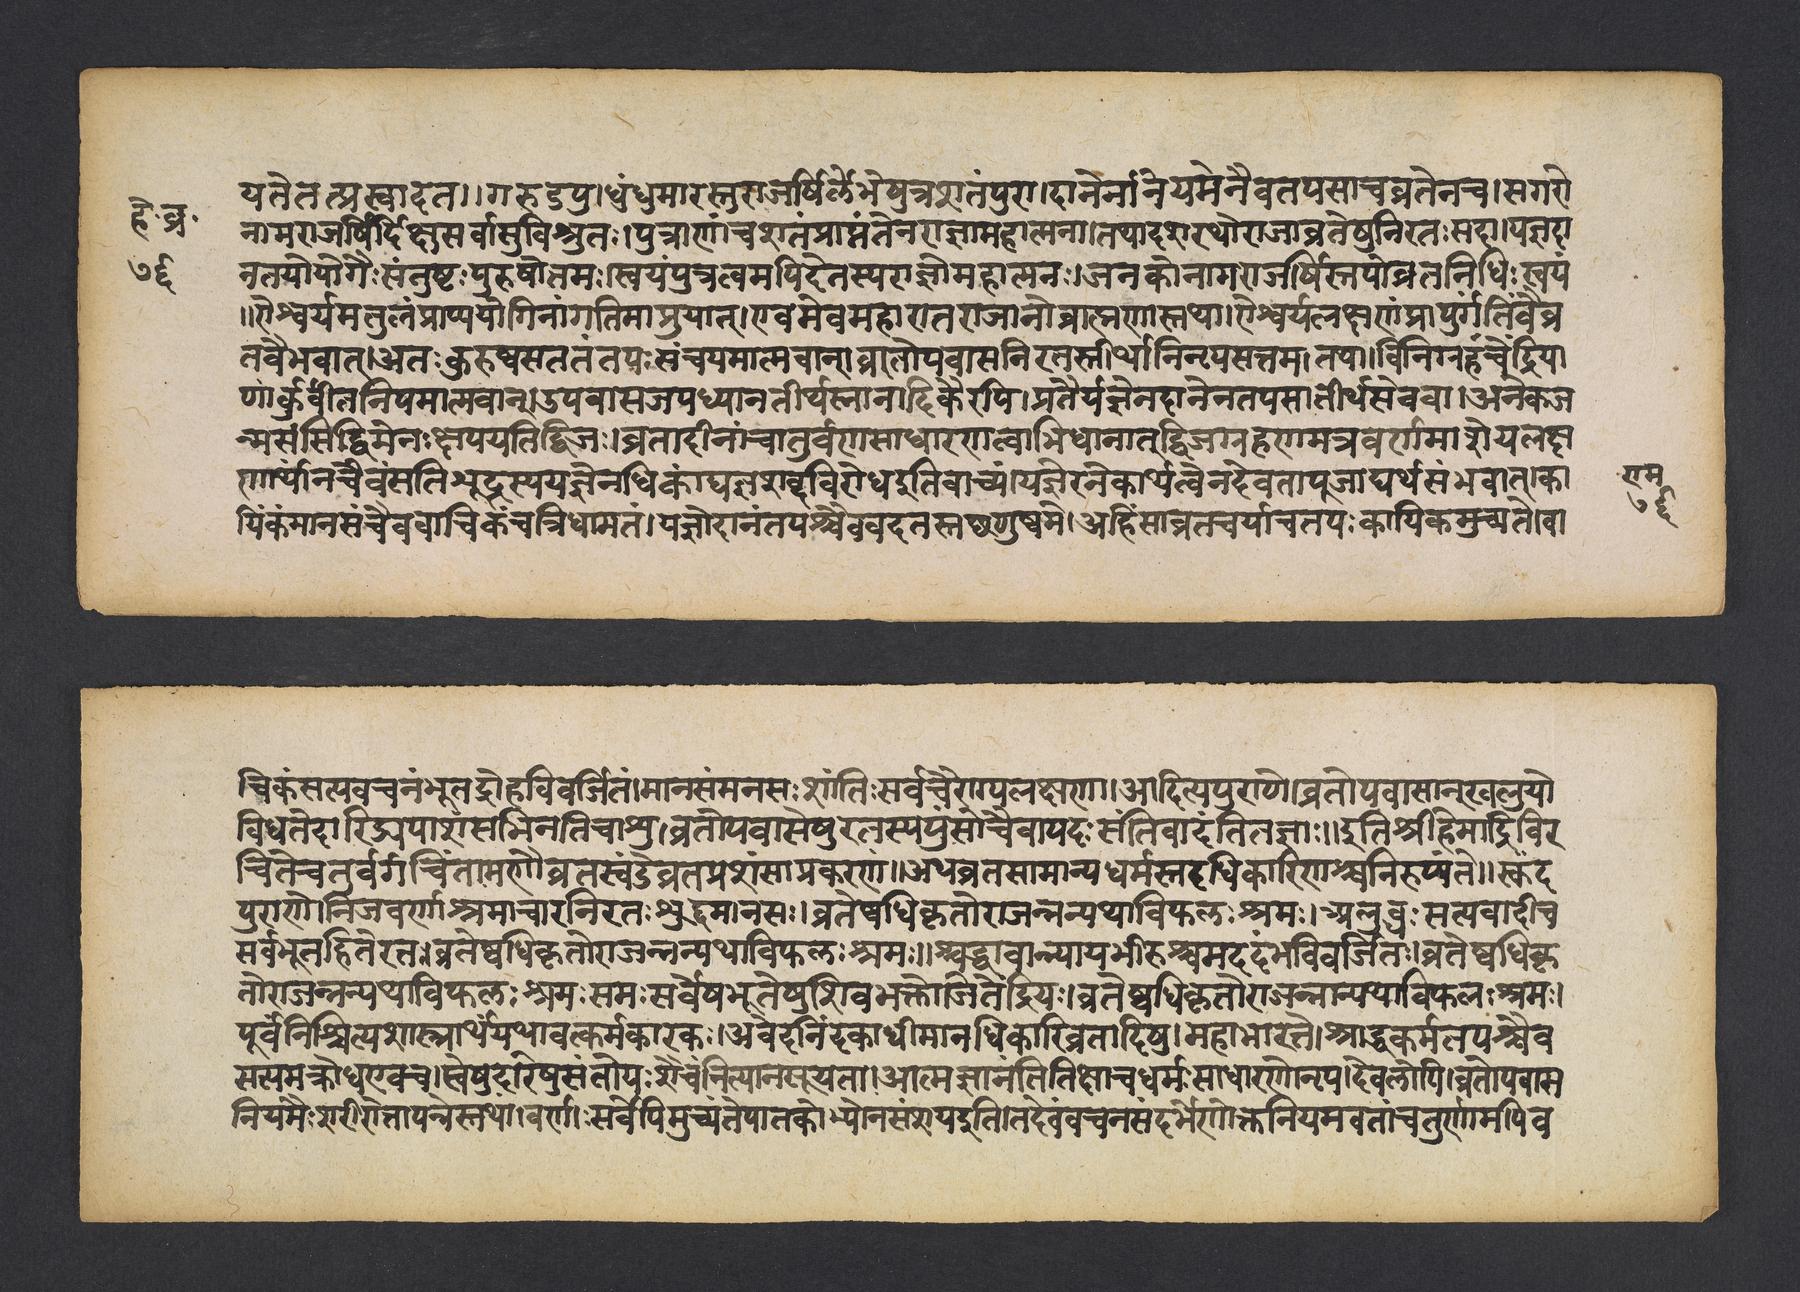 हे.व्र.
७६
यतैतत्प्रस्वादत।।गरुडपु।धुंधुमारस्तुराजर्षिर्लेभेपुत्रशतंपुरा।दानेर्नानियमेनैवतपसाचव्रतेनच।सगरो
नामराजर्षिर्दिक्षुसर्वासुविश्रुतः।पुत्राणांचशतंप्राप्तंतेनराज्ञामहात्मना।तथादशरथोराजाव्रतेषुनिरतःसदा।यज्ञदा
नतयोयोगैःसंतुष्टःपुरुषोत्तमः।स्वयंपुत्रत्वमपिदेतस्यराज्ञोमहात्मनः।जनकोनामराजर्षिस्तपोव्रतनिधिःस्वयं
॥ऐश्वर्यमतुलंप्राप्ययोगिनांगतिमाप्नुयात्।एवमेवमहाराजराजानोब्राह्मणास्तथा।ऐश्वर्यलक्षणंप्रापुर्गतिंवैव्र
तवैभवात्।अतःकुरुष्वसततंतपःसंचयमात्मवान्।व्रातोपवासनिरतस्तीर्थानिन्टपसत्तम।तथा॥विनिग्रहंचेंद्रिया
णांर्कुर्वीतनियमात्मवान्।उपवासजपध्यानतीर्थस्नानादिकैरपि।प्रतैर्यज्ञेनदानेनतपसातीर्थसेववा।अनेकज
न्मसंसिद्धिमेनःक्षपयतिद्विजः।व्रतादीनांचातुर्वर्णसाधारणत्वाभिधानात्द्विजग्रहणमत्रवर्णमात्रोपलक्ष
णार्थानचैवंसतिशूद्रस्ययज्ञेनधिकाराद्यज्ञशब्दविरोधइतिवाच्यं।यज्ञेरनेकार्थत्वेनदेवतापूजाद्यर्थसंभवात्।का
यिकंमानसंचैववाचिकंचत्रिधामतं।यज्ञोदानंतपश्चैववदतस्तछणुष्वमे।अहिंसाव्रतचर्याचतपःकायिकमुच्यते।वा
राम
७६
चिकंसत्यवचनंभूतद्रोहविवर्जितं।मानसंमनसःशांतिःसर्वचैराग्यलक्षणा।आदित्यपुराणे।व्रतोपवासान्खलुयो
विधतेदारिद्र्यपाशंसभिनतिचाशु।व्रतोपवासेषुरतस्यपुंसांचैवापदःसंतिवादंतितज्ञाः॥इतिश्रीहेमाद्रिविर
चितेचतुर्वर्गचिंतामणौव्रतस्वंडेव्रतप्रशंसाप्रकरणं॥अथव्रतसामान्यधर्मस्तदधिकारिणश्चनिरूप्यंते॥स्कंद
पुराणे।निजवर्णाश्रमाचारनिरतःशुद्धमानसः।व्रतेष्वधिकृतोराजन्नन्यथाविफलःश्रमः।अलुब्धःसत्यवादीच
सर्वभूतहितेरतः।व्रतेष्वधिकृतोराजन्नन्यथाविफलःश्रमः॥श्रद्धावान्न्यायभीरुश्चमददंभविवर्जितः।व्रतेष्वधिकृ
तोराजन्नन्यथाविफलःश्रमःसमःसर्वेषभूतेषुशिवभक्तोजितेंद्रियः।व्रतेष्वधिकृतोराजन्नान्यथाविफलःश्रमः।
पूर्वेनिश्चित्यशास्त्रार्थयथावत्कर्मकारकः।अवेदनिंदकोधीमानधिकारिव्रतादिषु।महाभारते।श्राद्धकर्मतपश्चैव
सत्यमक्रोधएवच।स्वेषुदारेषुसंतोषःशौचंनित्यानसूयता।आत्मज्ञानंतितिक्षाचधर्मःसाधारणोन्टप।देवलोपि।व्रतोपवास
नियमैःशरीरोत्तापनैस्तथा।वर्णाःसर्वेपिमुच्यंतेपातकेभ्योनसंशयइति।तदेवंवचनसंदर्भेणोक्तनियमवतांचतुर्णामपिव